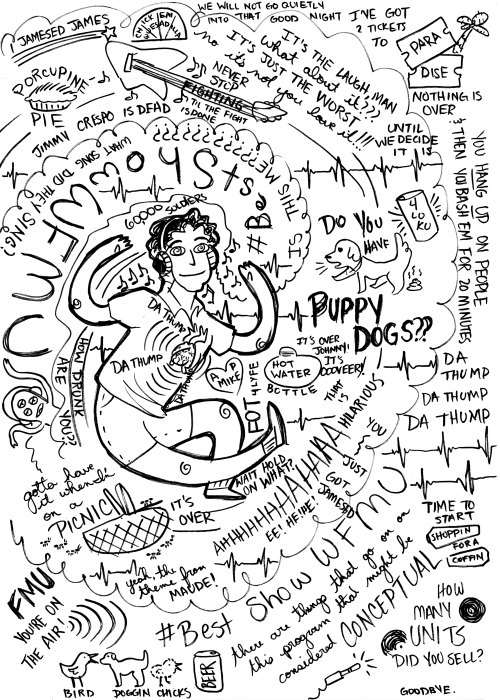 WE WILL NOT GO QUIETLY
INTO THAT GOOD NIGHT
I'VE GOT
2 TICKETS
TO
PARA
DISE
NOTHING IS
OVER
UNTIL
WE DECIDE
IT IS
JAMESED JAMES
CHICK 'EM
IT'S THE LAUGH, MAN
IT'S JUST THE WORST
what about it???
no it's not you love it!!!
NEVER
STOP
FIGHTING
'TIL THE FIGHT
IS DONE
PORCUPINE
PIE
JIMMY CRESPO IS DEAD
WHAT SONG DID THEY SING?
THIS MESSSSSSS
IS
#BestShow WFMU
GOOOD SOLDIERS
YOU HANG UP ON PEOPLE
THEN YOU BASH EM FOR 20 MINUTES
4
LOKO
DO YOU
HAVE
PUPPY
DOGS??
DA THUMP
DA THUMP
DA THUMP
IT'S OVER
JOHNNY!
IT'S
OOOVEER!
HOT
WATER
BOTTLE
AP
MIKE
FOT 4 LIFE
HOW DRUNK
ARE
YOU??
DA
THUMP
DA THUMP
DA THUMP
THAT
IS
HILARIOUS
AHHHHHHAHHAHAAA
EE! HE! HE!
YOU
JUST
GOT
JAMESED
WAIT HOLD
ON WHAT?
gotta have
it when I'
on a
PICNIC
IT'S
OVER
yeah, the
theme from
MAUDE!
TIME TO
START
SHOPPIN
FOR A
COFFIN
FMU
YOU'RE ON
THE AIR!
#Best Show WFMU
there are things that go on on
this program that might be
considered CONCEPTUAL
HOW
MANY
UNITS
DID YOU SELL?
BIRD
DOGGIN
CHICKS
BEER
GOODBYE.